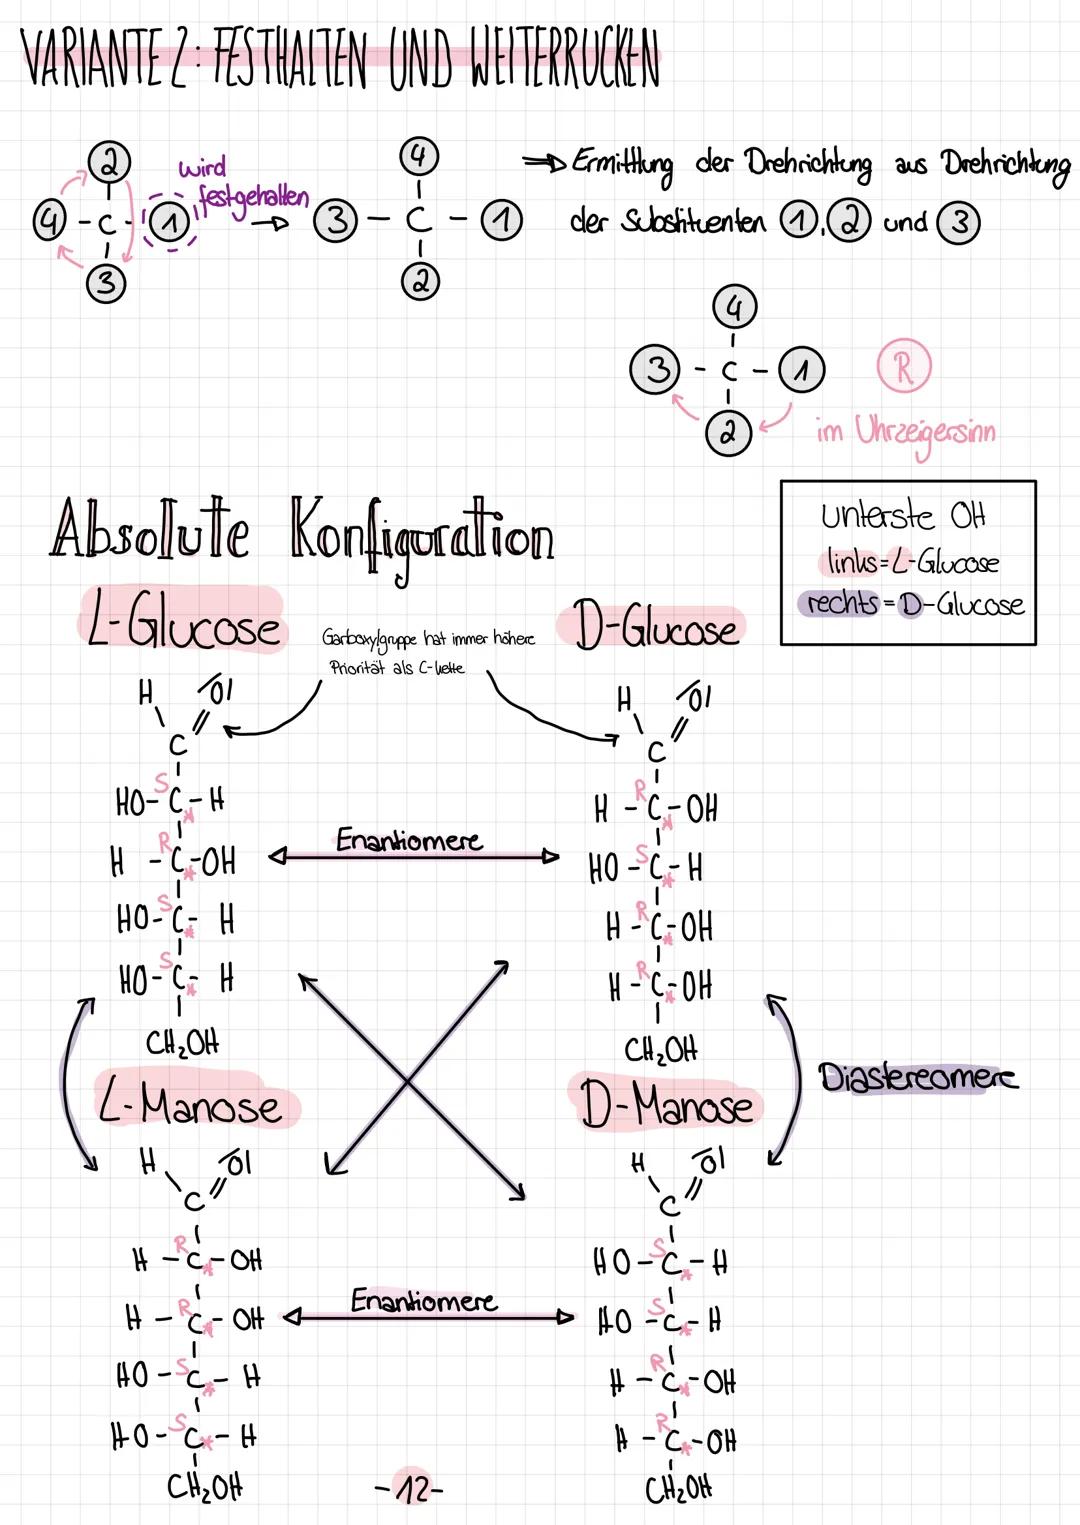 VARIANTE 2: FESTHALTEN UND WEITERRÜCKEN
2
wird
festgehalten
4 - C - 1
3
4
3 - C - 1
2
⇒ Ermittlung der Drehrichtung aus Drehrichtung
der Substituenten 1, 2 und 3
4
3 - C - 1
R
2
im Uhrzeigersinn
Absolute Konfiguration
unterste OH
links = L-Glucose
rechts = D-Glucose
L-Glucose
Garboxylgruppe hat immer höhere
Priorität als C-Kette
D-Glucose
H O
C
S
HO-C*-H
R
H-C*-OH
S
HO-C*-H
S
HO-C*-H
CH₂OH
Enantiomere
H O
C
R
H-C*-OH
S
HO-C*-H
R
H-C*-OH
R
H-C*-OH
CH₂OH
Diastereomere
L-Manose
D-Manose
H O
C
R
H-C*-OH
R
H-C*-OH
S
HO-C*-H
S
HO-C*-H
CH₂OH
Enantiomere
H O
C
S
HO-C*-H
S
HO-C*-H
R
H-C*-OH
R
H-C*-OH
CH₂OH
-12-